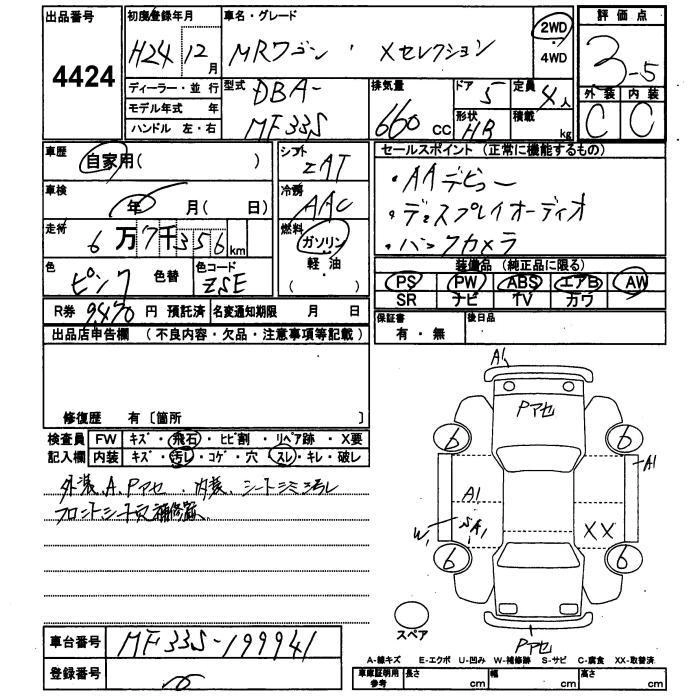 出品番号
4424
初度登録年月
H24 12月
車名・グレード
MRワゴン ・ Xセレクション
2WD
・
4WD
評価点
3 -5
外装 内装
C C
ディーラー・並行
モデル年式 年
ハンドル 左・右
型式
DBA-
MF33S
排気量
660 cc
ドア 5
形状 HB
定員 4人
積載 kg
車歴
自家用( )
シフト
IAT
車検
年 月( 日)
冷房
AAC
走行
6万7千356km
燃料
ガソリン
・
軽油
( )
色
ピンク 色替
色コード
ZSE
セールスポイント(正常に機能するもの)
・AAデビュー
・ディスプレイオーディオ
・バックカメラ
装備品(純正品に限る)
PS PW ABS エアB AW
SR ナビ TV カワ
R券 9,470円 預託済 名変通知期限 月 日
保証書
有・無
後日品
出品店申告欄 (不良内容・欠品・注意事項等記載)
修復歴 有〔箇所 〕
検査員 FW キズ・飛石・ヒビ割・リペア跡・X要
記入欄 内装 キズ・汚レ・コゲ・穴・スレ・キレ・破レ
外装、A、Pマセ、内装、シートシミ
フロントシート
A1
Pマセ
6
6
A1
A1
W1
SA1
XX
6
6
スペア
Pマセ
車台番号 MF33S-199941
登録番号
A-線キズ E-エクボ U-凹み W-補修跡 S-サビ C-腐食 XX-取替済
車庫証明用
参考
長さ cm
幅 cm
高さ cm